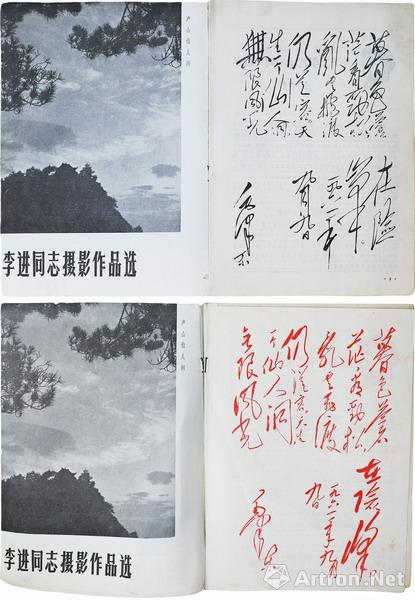 庐山仙人洞
李进同志摄影作品选
暮色蒼
茫看勁松
亂雲飛渡
仍從容天
生一个仙人洞
無限風光
在險
峰
一九六一年
九月九日
毛泽东
庐山仙人洞
李进同志摄影作品选
暮色蒼
茫看勁松
亂雲飛渡
仍從容天生
一个仙人洞
无限風光
在險峰
一九六一年九月
九日
毛泽东
Artron.Net